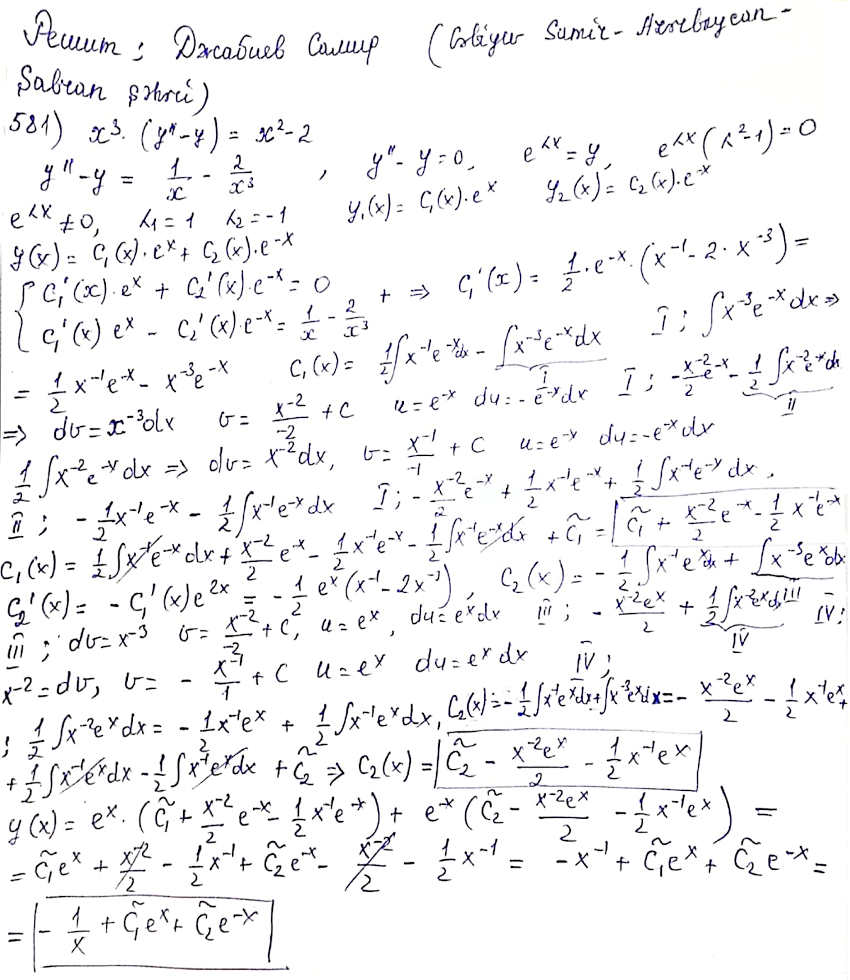 Решит; Джабиев Самир (Cəbiyev Samir - Azerbaycan -
Şabran şəhəri)
581) x³·(y''-y) = x²-2
y''-y = 1/x - 2/x³ , y''-y=0, e^λx = y, e^λx(λ²-1)=0
e^λx ≠0, λ₁=1 λ₂=-1 y₁(x)= C₁(x)·e^x y₂(x)= C₂(x)·e^-x
y(x)= C₁(x)·e^x + C₂(x)·e^-x
{ C₁'(x)·e^x + C₂'(x)·e^-x = 0 + ⇒ C₁'(x)= 1/2·e^-x·(x^-1 - 2·x^-3)=
C₁'(x) e^x - C₂'(x)·e^-x = 1/x - 2/x³
= 1/2 x^-1e^-x - x^-3e^-x C₁(x)= 1/2∫x^-1e^-x dx - ∫x^-3e^-x dx I I; ∫x^-3e^-x dx ⇒
⇒ dv=x^-3dx v= x^-2/-2 + C u=e^-x du=-e^-x dx I; -x^-2/2 e^-x - 1/2∫x^-2e^-x dx II
1/2∫x^-2e^-x dx ⇒ dv= x^-2dx, v= x^-1/-1 + C u=e^-x du=-e^-x dx
II; -1/2x^-1e^-x - 1/2∫x^-1e^-x dx I; -x^-2/2 e^-x + 1/2x^-1e^-x + 1/2∫x^-1e^-x dx,
C₁(x)= 1/2∫x^-1e^-x dx + x^-2/2 e^-x - 1/2x^-1e^-x - 1/2∫x^-1e^-x dx + C̃₁ = C̃₁ + x^-2/2 e^-x - 1/2 x^-1e^-x
C₂'(x)= -C₁'(x)e^2x = -1/2 e^x(x^-1 - 2x^-3), C₂(x)= -1/2∫x^-1e^x dx + ∫x^-3e^x dx III
III; dv=x^-3 v= x^-2/-2 + C, u=e^x, du=e^x dx III; -x^-2e^x/2 + 1/2∫x^-2e^x dx IV IV;
x^-2=dv, v= -x^-1/1 + C u=e^x du=e^x dx IV;
; 1/2∫x^-2e^x dx = -1/2x^-1e^x + 1/2∫x^-1e^x dx, C₂(x)=-1/2∫x^-1e^x dx+∫x^-3e^x dx=- x^-2e^x/2 - 1/2 x^-1e^x+
+1/2∫x^-1e^x dx - 1/2∫x^-1e^x dx + C̃₂ ⇒ C₂(x)= C̃₂ - x^-2e^x/2 - 1/2x^-1e^x
y(x)= e^x·(C̃₁ + x^-2/2 e^-x - 1/2x^-1e^-x) + e^-x(C̃₂ - x^-2e^x/2 - 1/2x^-1e^x) =
= C̃₁e^x + x^-2/2 - 1/2x^-1 + C̃₂e^-x - x^-2/2 - 1/2x^-1 = -x^-1 + C̃₁e^x + C̃₂e^-x =
= -1/x + C̃₁e^x + C̃₂e^-x